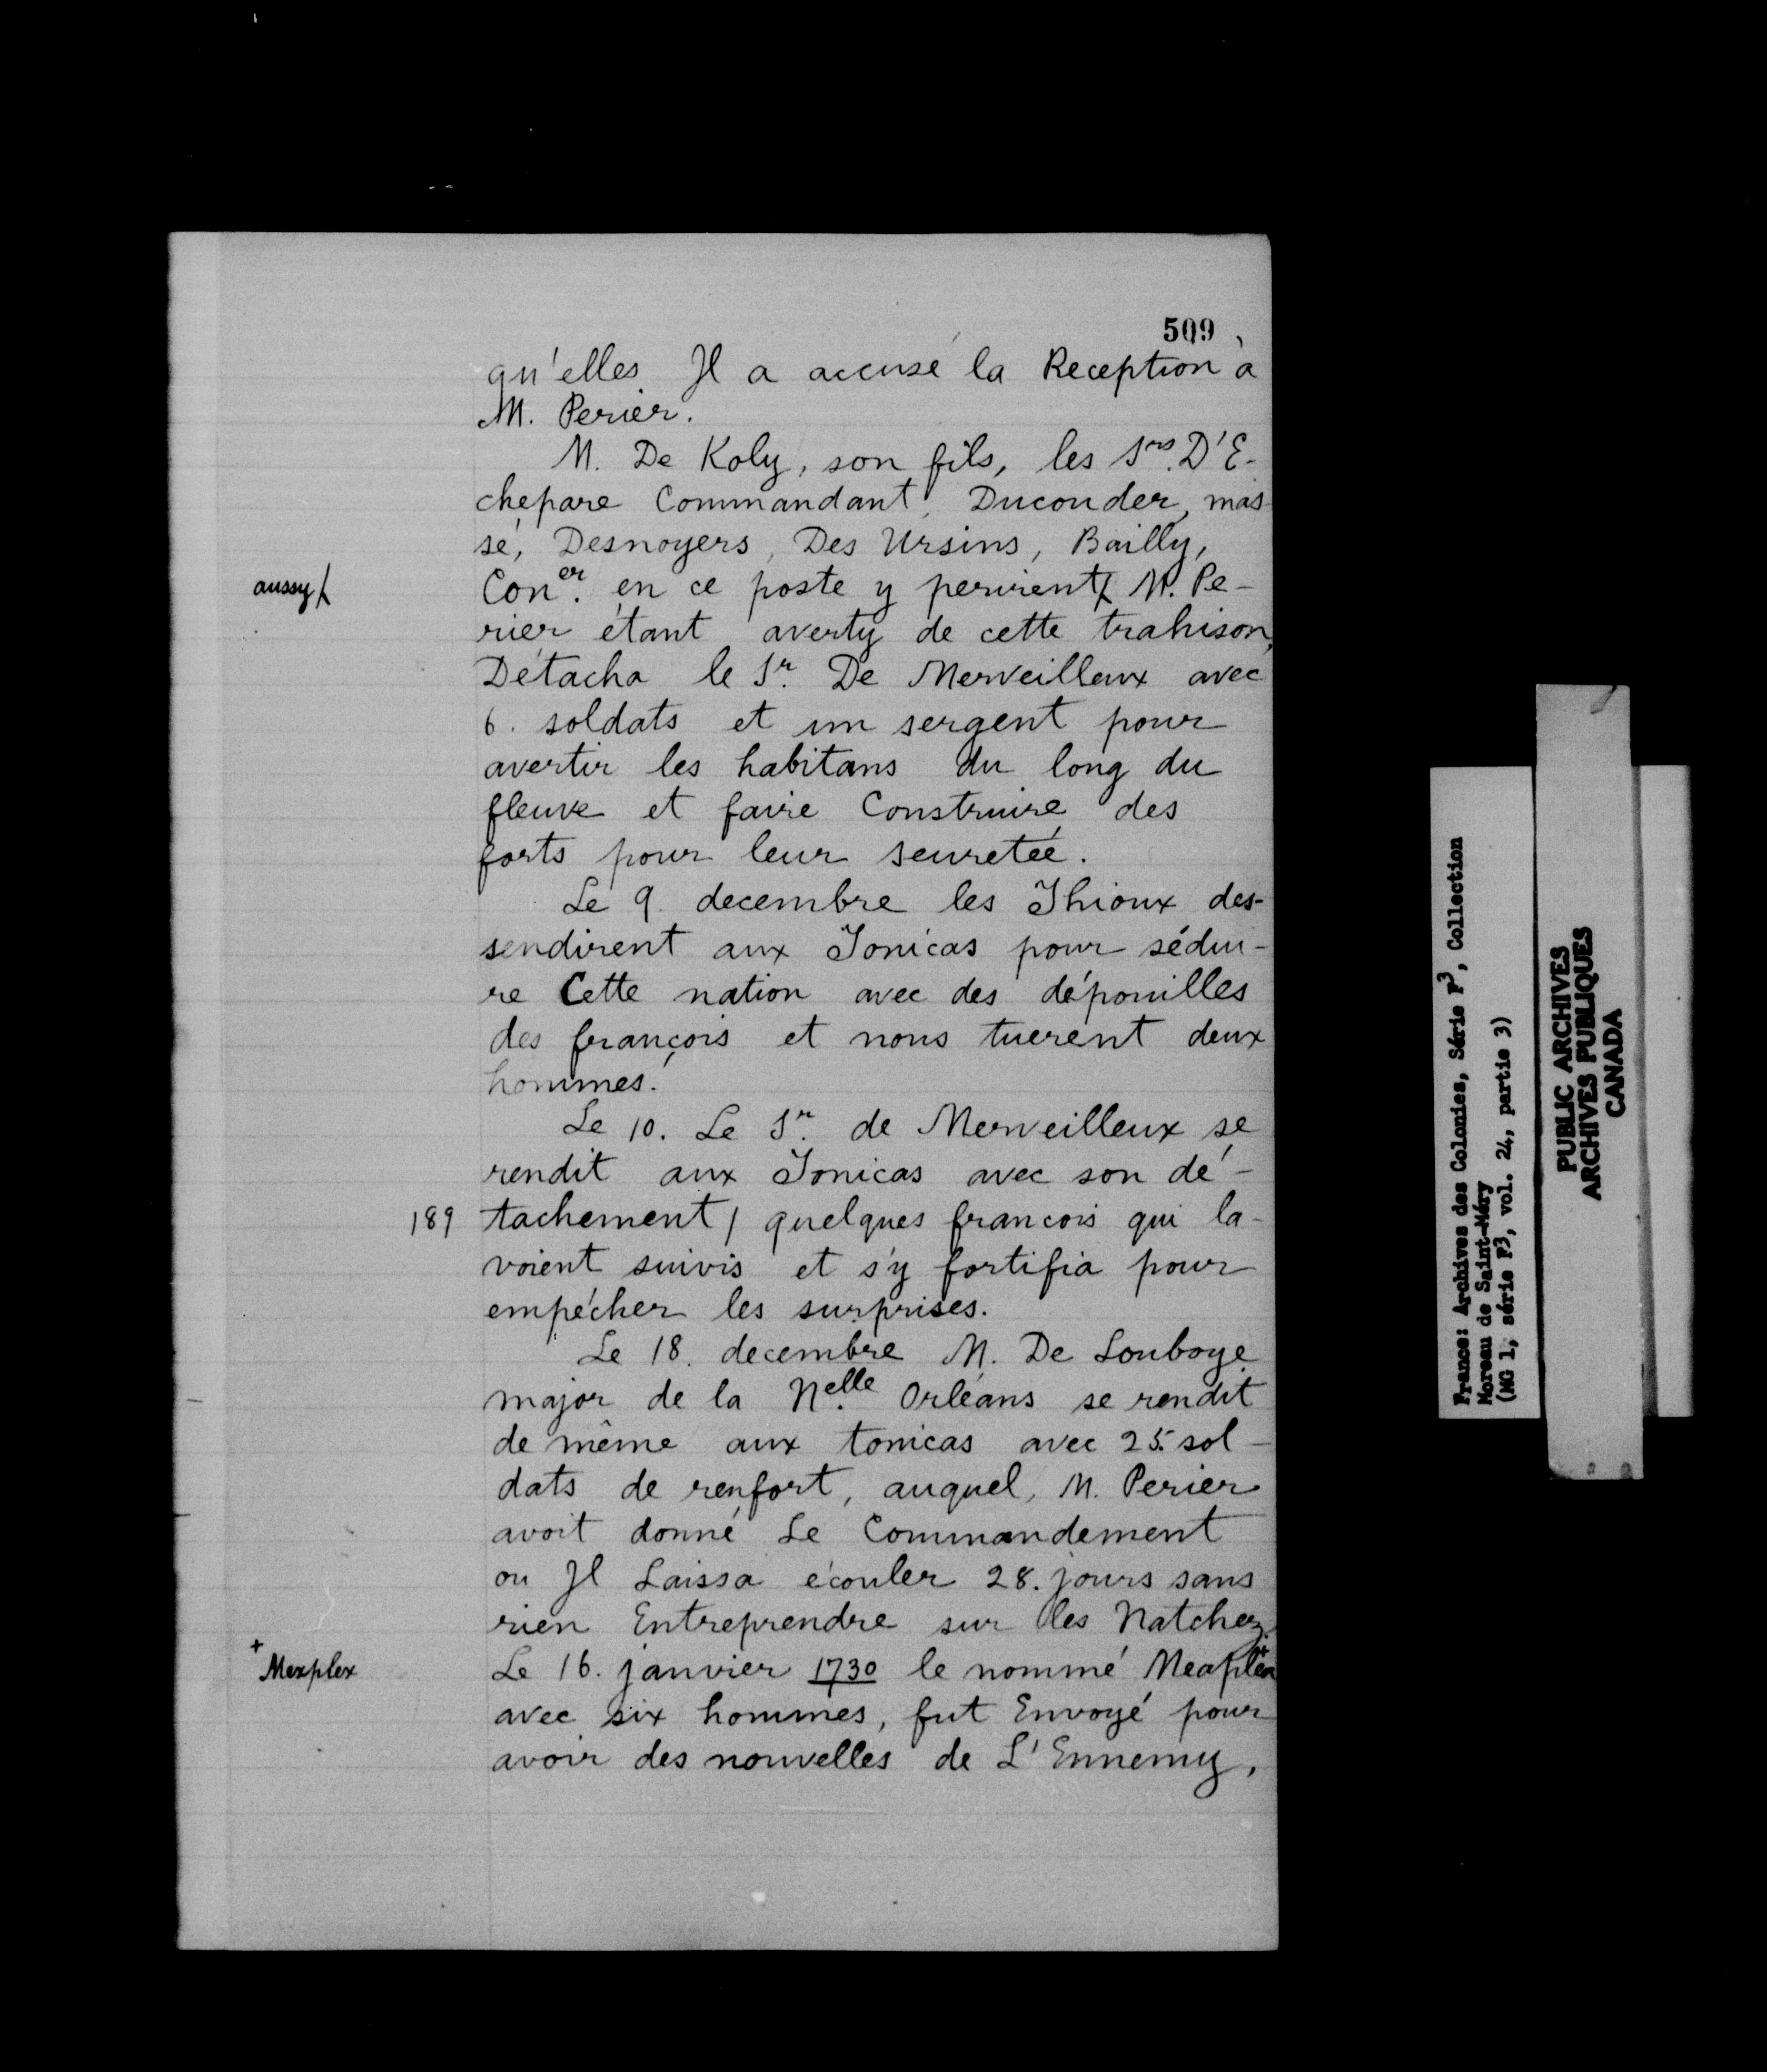 509
qu'elles Il a accusé la Reception à
M. Perier.
M. De Koly, son fils, les Srs. D'E-
chepare Commandant, Ducouder, mas-
sé, Desnoyers, Des Ursins, Bailly,
aussy/
Coner. en ce poste y perirent/ M. Pe-
rier étant averty de cette trahison,
Détacha le Sr. De Merveilleux avec
6. soldats et un sergent pour
avertir les habitans du long du
fleuve et faire Construire des
forts pour leur seuretée.
Le 9. decembre les Thioux des-
sendirent aux Tonicas pour sédui-
re Cette nation avec des dépouilles
des françois et nous tuerent deux
hommes.
Le 10. Le Sr. de Merveilleux se
rendit aux Tonicas avec son dé-
189 tachement / quelques francois qui la-
voient suivis et s'y fortifia pour
empécher les surprises.
Le 18. decembre M. De Louboye
major de la Nelle. Orléans se rendit
de même aux tonicas avec 25. sol-
dats de renfort, auquel, M. Perier
avoit donné Le Commandement
ou Il Laissa écouler 28. jours sans
rien Entreprendre sur les Natchez.
+ Mexplex
Le 16. janvier 1730 le nommé Meaplea+
avec six hommes, fut Envoyé pour
avoir des nouvelles de L'Ennemy,
France: Archives des Colonies, Série F3, Collection
Moreau de Saint-Méry
(MG 1, série F3, vol. 24, partie 3)
PUBLIC ARCHIVES
ARCHIVES PUBLIQUES
CANADA